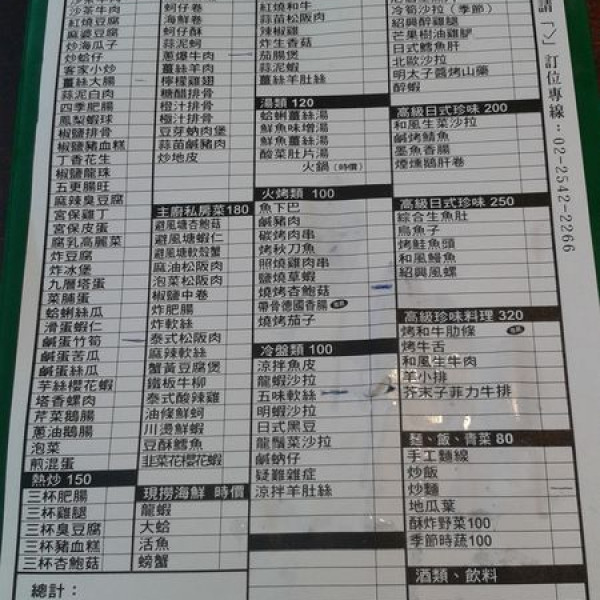 沙茶牛肉
紅燒豆腐
麻婆豆腐
炒海瓜子
炒蛤仔
客家小炒
薑絲大腸
蒜泥白肉
四季肥腸
鳳梨蝦球
椒鹽排骨
椒鹽豬血糕
丁香花生
椒鹽龍珠
五更腸旺
麻辣臭豆腐
宮保雞丁
宮保皮蛋
腐乳高麗菜
炸豆腐
炸冰堡
九層塔蛋
菜脯蛋
蛤蜊絲瓜
滑蛋蝦仁
鹹蛋竹筍
鹹蛋苦瓜
鹹蛋絲瓜
芋絲櫻花蝦
塔香螺肉
芹菜鵝腸
蔥油鵝腸
泡菜
煎混蛋
熱炒 150
三杯肥腸
三杯雞腿
三杯臭豆腐
三杯豬血糕
三杯杏鮑菇
總計：
蚵仔卷
海鮮卷
蚵仔酥
蒜泥蚵
蔥爆牛肉
薑絲羊肉
檸檬雞翅
糖醋排骨
橙汁排骨
極汁排骨
豆芽蚋肉煲
蒜苗鹹豬肉
炒地皮
主廚私房菜180
避風塘杏鮑菇
避風塘蝦仁
避風塘軟殼蟹
麻油松阪肉
泡菜松阪肉
椒鹽中卷
炸肥腸
炸軟絲
泰式松阪肉
麻辣軟絲
蟹黃豆腐煲
鐵板牛柳
泰式酸辣雞
油條鮮蚵
川燙鮮蝦
豆酥鱈魚
韭菜花櫻花蝦
現撈海鮮 時價
龍蝦
大蛤
活魚
螃蟹
紅燒和牛
蒜苗松阪肉
辣椒雞
炸生香菇
茄腸煲
蒜泥蝦
薑絲羊肚絲
湯類 120
蛤蜊薑絲湯
鮮魚味增湯
鮮魚薑絲湯
酸菜肚片湯
火鍋(時價)
火烤類 100
魚下巴
鹹豬肉
碳烤牛肉串
烤秋刀魚
照燒雞肉串
鹽燒草蝦
燒烤杏鮑菇
帶骨德國香腸
燒烤茄子
冷盤類 100
涼拌魚皮
龍蝦沙拉
五味軟絲
明蝦沙拉
日式黑豆
龍鬚菜沙拉
鹹蚋仔
疑難雜症
涼拌羊肚絲
冷筍沙拉(季節)
紹興醉雞腿
芒果樹油雞腿
日式鱈魚肝
北歐沙拉
明太子醬烤山藥
醉蝦
高級日式珍味 200
和風生菜沙拉
鹹烤鯖魚
墨魚香腸
煙燻鵝肝卷
高級日式珍味 250
綜合生魚肚
烏魚子
烤鮭魚頭
和風鰻魚
紹興風螺
高級珍味料理 320
烤和牛肋條
烤牛舌
和風生牛肉
羊小排
芥末子菲力牛排
麵、飯、青菜 80
手工麵線
炒飯
炒麵
地瓜葉
酥炸野菜100
季節時蔬100
酒類、飲料
請「✓」訂位專線：02-2542-2266